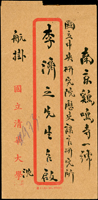 南京鷄鳴寺一號
國立中央研究院歷史語言研究所
李濟之先生台啟
航掛
國立清華大學
沈